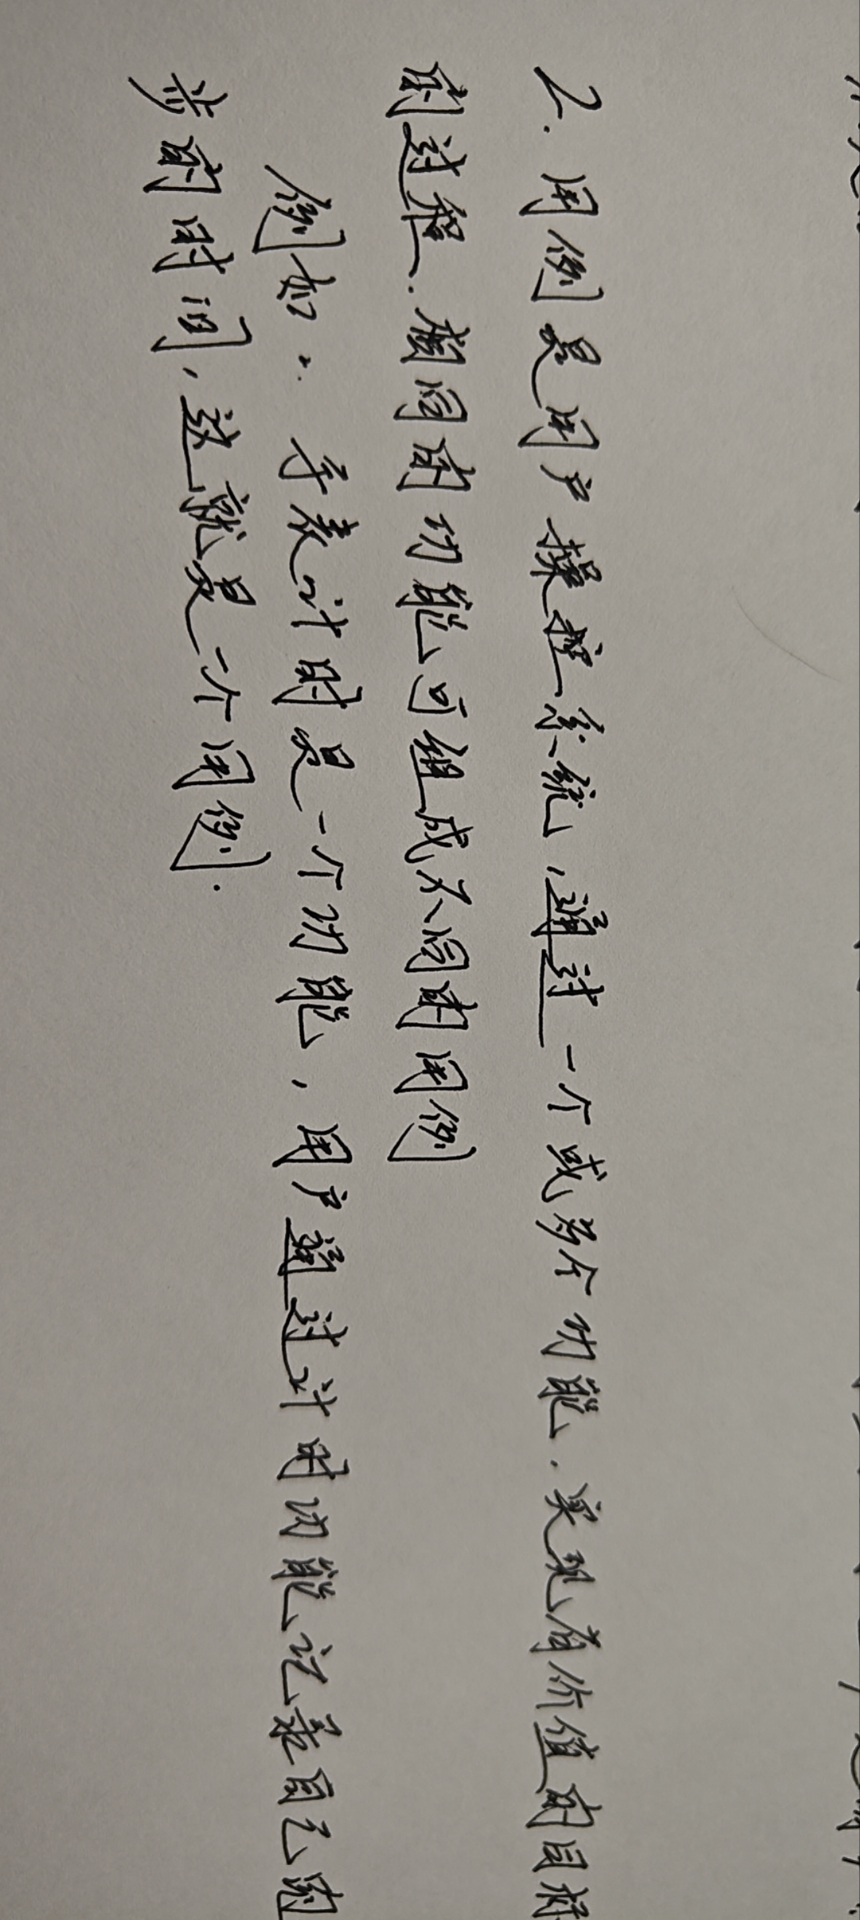 2. 用例是用户操控系统,通过一个或多个功能.实现有价值的目标
的过程.相同的功能可组成不同的用例
例如:手表计时是一个功能,用户通过计时功能记录自己的
步的时间,这就是一个用例.